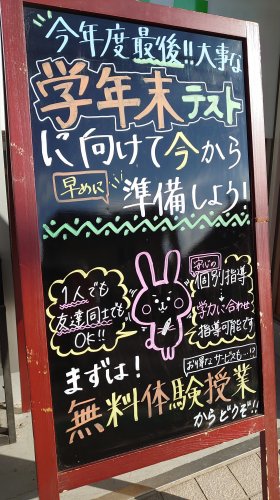 今年度最後!!大事な
学年末テスト
に向けて今から
早めに
準備しよう!
1人でも
友達同士でも
OK!!
安心の
個別指導
学力に合わせ
指導可能です
お得なサービスも…!?
まずは!
無料体験授業
からどうぞ!!